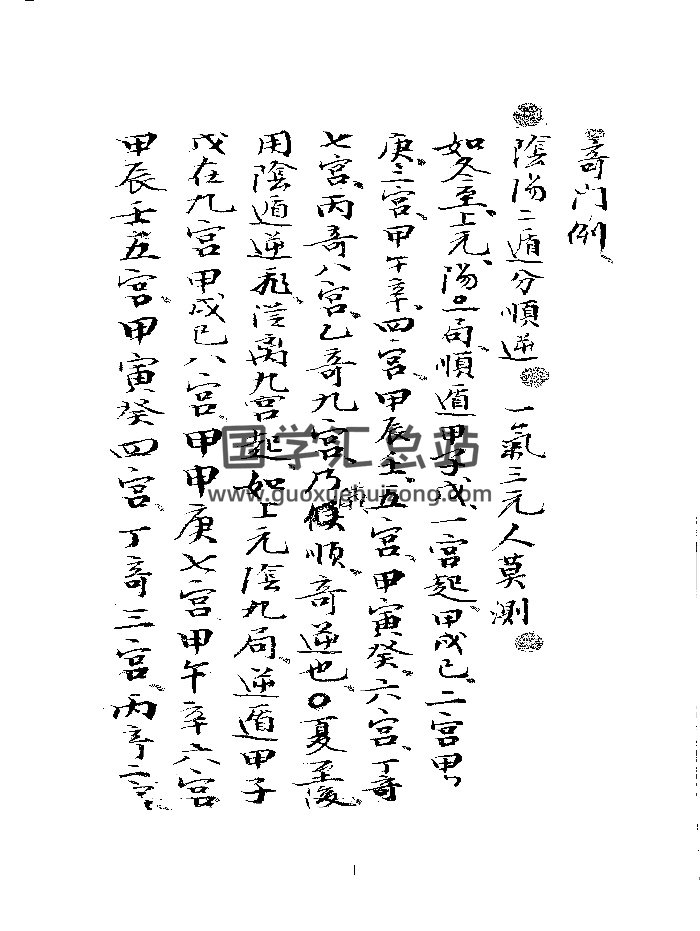 奇门例
陰陽二遁分順逆 一氣三元人莫測
如冬至上元陽一局順遁甲子戊一宮起甲戌己二宮甲申
庚三宮甲午辛四宮甲辰壬五宮甲寅癸六宮丁奇
七宮丙奇八宮乙奇九宮乃儀順奇逆也〇夏至後
用陰遁逆飛從离九宮起如上元陰九局逆遁甲子
戊在九宮甲戌己八宮甲申庚七宮甲午辛六宮
甲辰壬五宮甲寅癸四宮丁奇三宮丙奇二宮
国学汇总站
www.guoxuehuizong.com
1